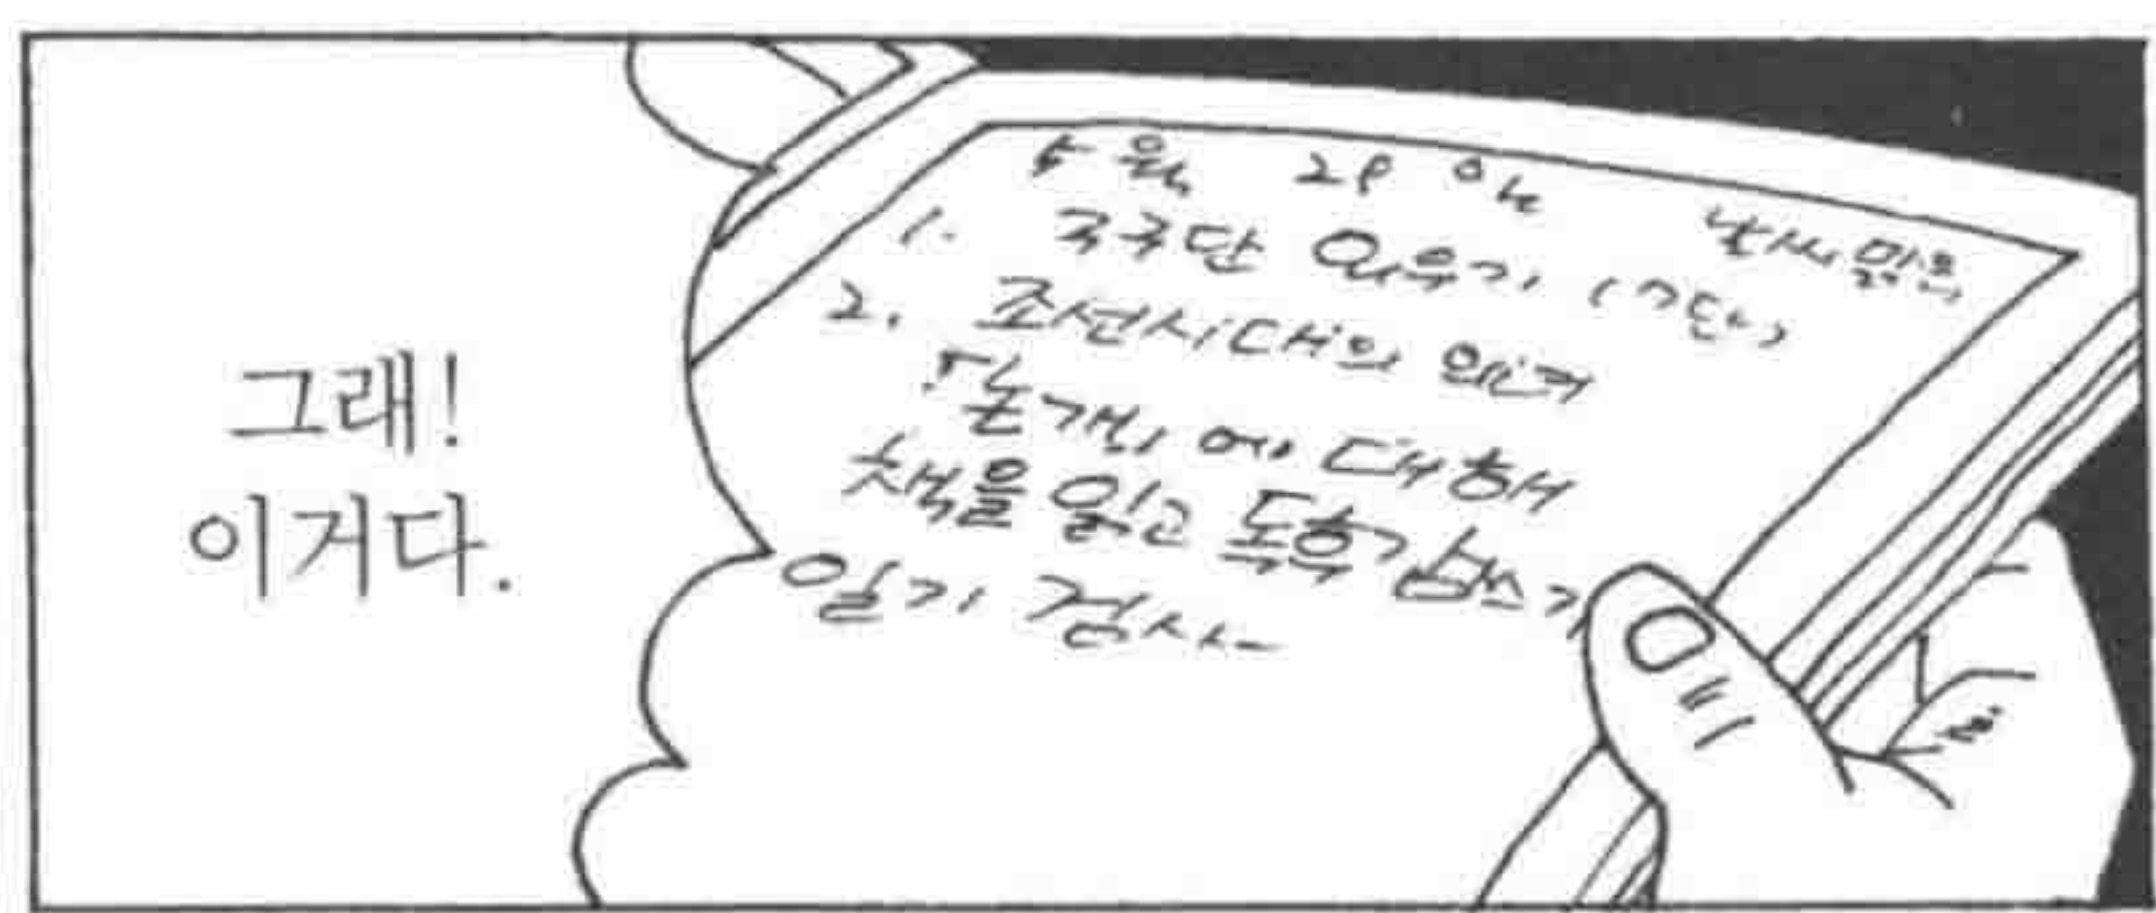 그래!
이거다.
5월 28일 날씨 맑음
1. 구구단 외우기 (7단)
2. 조선시대의 의녀
「논개」에 대해
책을 읽고 독후감쓰기
일기 검사